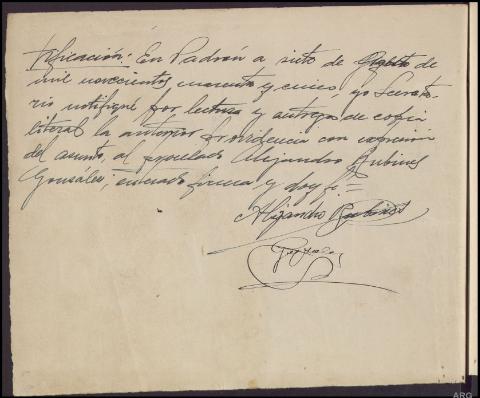 Notificación: En Padrón a siete de Agosto de
mil novecientos cuarenta y cinco, yo Secreta-
rio notifiqué por lectura y entrega de copia
literal la anterior providencia con expresión
del asunto, al apelado Alejandro Rubines
González; enterado firma y doy fe.=
Alejandro Rubines
ARG